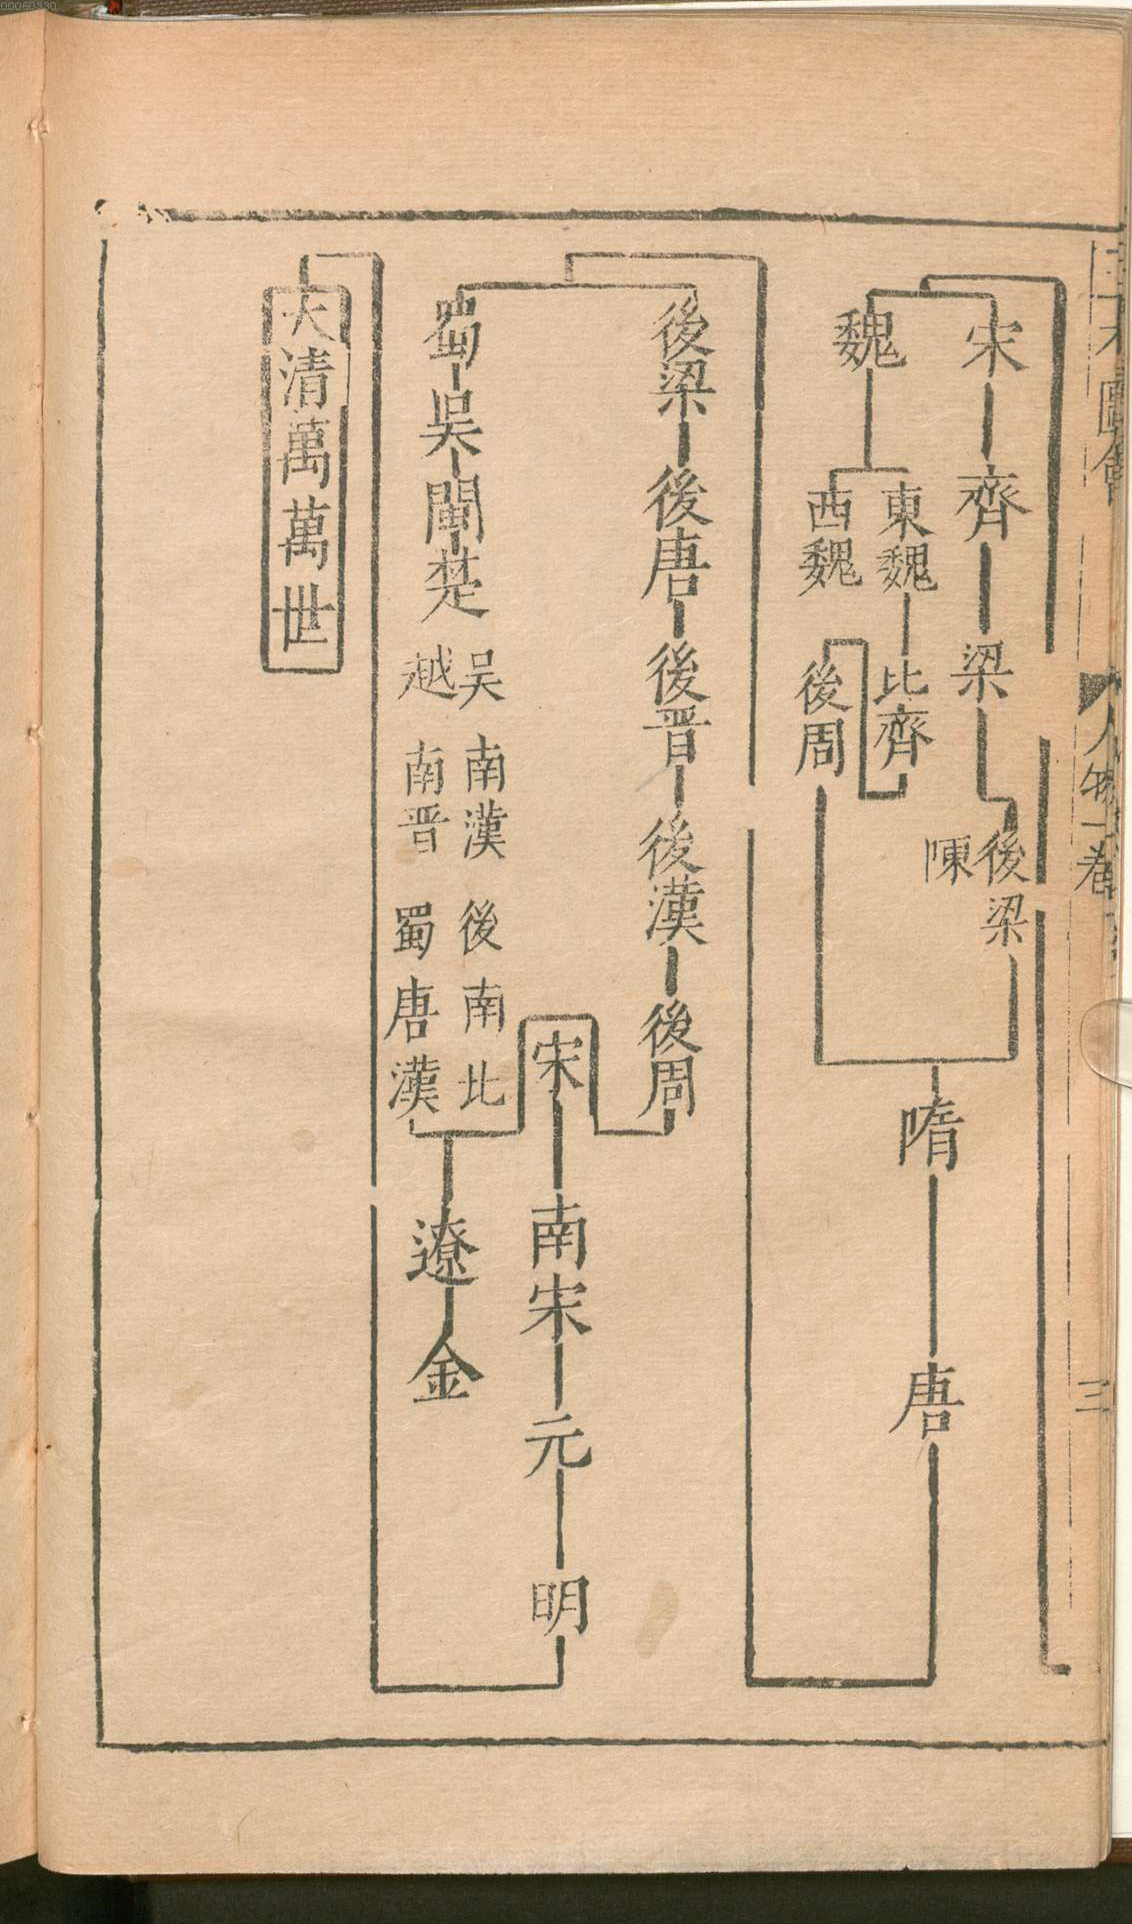 00060330
三才圖會
人物一卷
三
宋
齊
梁
後梁
陳
魏
東魏
西魏
比齊
後周
隋
唐
後梁
後唐
後晋
後漢
後周
宋
南宋
元
明
蜀
吳
閩
楚
吴越
南漢
南晋
後蜀
南唐
北漢
遼
金
大清萬萬世